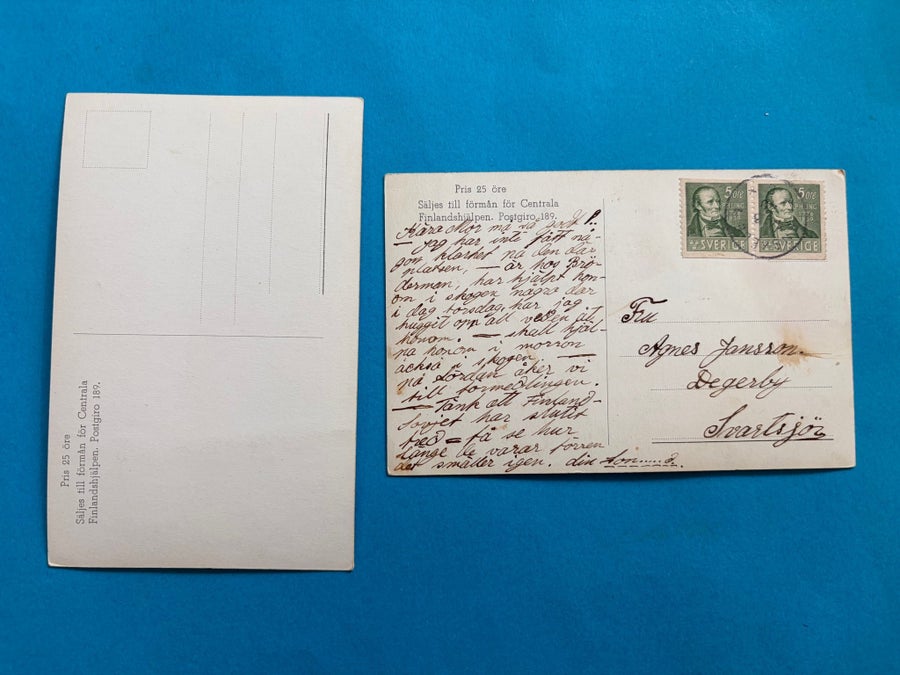 Pris 25 öre
Säljes till förmån för Centrala
Finlandshjälpen. Postgiro 189.
Pris 25 öre
Säljes till förmån för Centrala
Finlandshjälpen. Postgiro 189.
Kära Mor må så gott
Jag har inte fått nå-
gon klarhet på den där
platsen, — är hos
har hjälpt hon-
om i skogen några dar
i dag torsdag, har jag
huggit om all veden åt
honom. — skall hjäl-
pa honom i morron
också i skogen —
på Lördan åker vi
till förmedlingen.
— Tänk att Finland-
Sovjet har slutit
fred — få se hur
länge de varar förren
det smäller igen. din
5 ÖRE
SVERIGE
5 ÖRE
SVERIGE
Fru
Agnes Jansson.
Degerby
Svartsjö